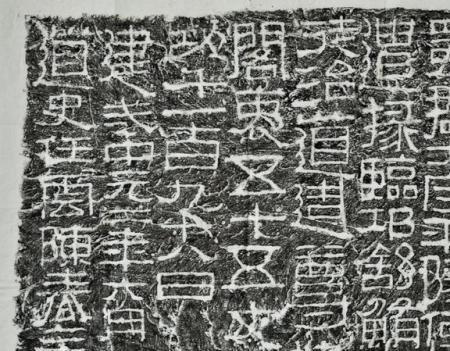 蜀郡太守平陵何
遣掾臨邛舒鮪
徒治道造尊
閣袤五十五丈
功千一百九十八日
建武中元二年六月
道史任雲陳春主